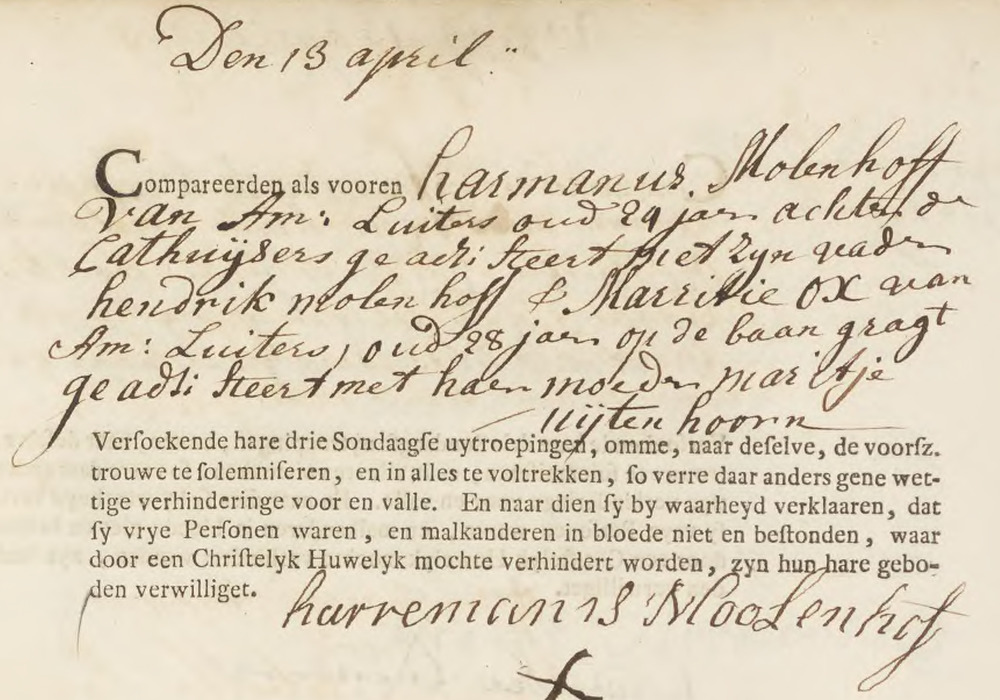 Den 13 april
Compareerden als vooren harmanus Molenhoff
van Am: Luiters oud 29 jaer achter de
Cathuijsers ge adsisteert met zyn vader
hendrik molen hoff & Marritie OX van
Am: Luiters, oud 28 jaer op de baan gragt
ge adsisteert met haer moeder maritje
uijten hoorn
Verſoekende hare drie Sondaagſe uytroepingen, omme, naar deſelve, de voorſz.
trouwe te ſolemniſeren, en in alles te voltrekken, ſo verre daar anders gene wet-
tige verhinderinge voor en valle. En naar dien ſy by waarheyd verklaaren, dat
ſy vrye Perſonen waren, en malkanderen in bloede niet en beſtonden, waar
door een Chriſtelyk Huwelyk mochte verhindert worden, zyn hun hare gebo-
den verwilliget.
harremanis Moolenhof